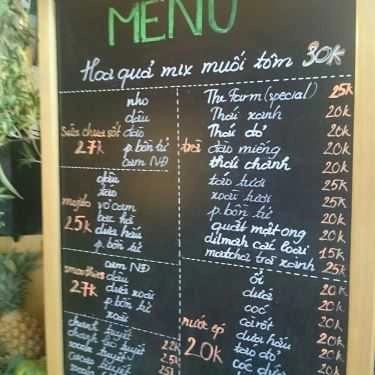 MENU
Hoa quả mix muối tôm 30K
Sữa chua sốt 27K
nho
dâu
đào
p.bôn tử
cam NĐ
mojito 25K
dâu
táo
vỏ cam
bạc hà
dưa hấu
p.bôn tử
smoothies 27K
cam NĐ
dâu
dứa xoài
p.bôn tử
xoài
chanh tuyết 22K
tuyết 25K
tuyết
trà
The Farm (special) 25K
Thái xanh 20K
Thái đỏ 20K
đào miếng 20K
thái chanh 20K
táo tươi 25K
xoài tươi 25K
p.bôn tử 20K
quất mật ong 20K
dilmah các loại 15K
matcha trà xanh 25K
nước ép 20K
ổi 20K
dứa 20K
cóc 20K
cà rốt 20K
dưa hấu 20K
táo đỏ 20K
cóc